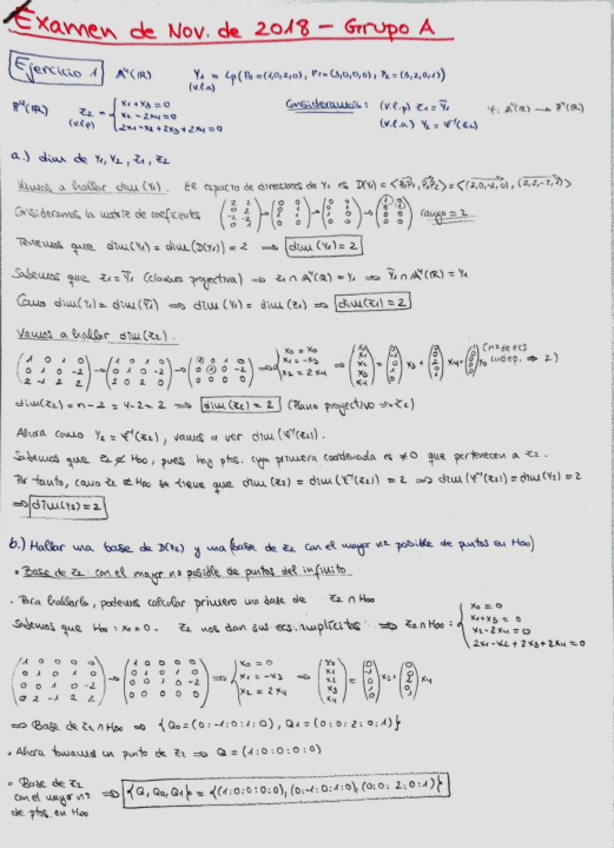 Examen de Nov. de 2018 - Grupo A
Ejercicio 1 A⁴(ℝ) Y₁ = Lp(P₀=(1,0,2,0), P₁=(3,0,0,0), P₂=(3,2,0,1))
(v.l.a)
P⁴(ℝ) Z₂ = { x₁+x₃=0
x₂-2x₄=0
2x₁-x₂+2x₃+2x₄=0
(v.l.p)
Consideramos: (v.l.p) Z₁ = Ȳ₁
(v.l.a) Y₂ = Ψ⁻¹(Z₂)
Ψ: A⁴(ℝ) → P⁴(ℝ)
a.) dim de Y₁, Y₂, Z₁, Z₂
Vamos a hallar dim(Y₁). El espacio de direcciones de Y₁ es D(Y₁) = <P₀P₁, P₀P₂> = <(2,0,-2,0), (2,2,-2,1)>
Consideramos la matriz de coeficientes rango = 2
Tenemos que dim(Y₁) = dim(D(Y₁)) = 2 ⟹ dim(Y₁) = 2
Sabemos que Z₁ = Ȳ₁ (clausura proyectiva) ⟹ Z₁ ∩ A⁴(ℝ) = Y₁ ⟹ Ȳ₁ ∩ A⁴(ℝ) = Y₁
Como dim(Y₁) = dim(Ȳ₁) ⟹ dim(Y₁) = dim(Z₁) ⟹ dim(Z₁) = 2
Vamos a hallar dim(Z₂).
(1 0 1 0 / 0 1 0 -2 / 2 -1 2 2) → (1 0 1 0 / 0 1 0 -2 / 2 0 2 0) → (1 0 1 0 / 0 1 0 -2 / 0 0 0 0) ⟹ { x₀ = x₀
x₁ = -x₃
x₂ = 2x₄
dim(Z₂) = n-2 = 4-2 = 2 ⟹ dim(Z₂) = 2 (Plano proyectivo ⟹ Z₂)
Ahora como Y₂ = Ψ⁻¹(Z₂), vamos a ver dim(Ψ⁻¹(Z₂)).
Sabemos que Z₂ ⊄ H∞, pues hay ptos. cuya primera coordenada es ≠0 que pertenecen a Z₂.
Por tanto, como Z₂ ⊄ H∞ se tiene que dim(Z₂) = dim(Ψ⁻¹(Z₂)) = 2 ⟹ dim(Ψ⁻¹(Z₂)) = dim(Y₂) = 2
⟹ dim(Y₂) = 2
b.) Hallar una base de D(Y₂) y una (base de Z₂ con el mayor nº posible de puntos en H∞)
• Base de Z₂ con el mayor nº posible de puntos del infinito
. Para hallarla, podemos calcular primero una base de Z₂ ∩ H∞
Sabemos que H∞: x₀=0. Z₂ nos dan sus ecs. implícitas ⟹ Z₂ ∩ H∞: { x₀=0
x₁+x₃=0
x₂-2x₄=0
2x₁-x₂+2x₃+2x₄=0
(1 0 0 0 0 / 0 1 0 1 0 / 0 0 1 0 -2 / 0 2 -1 2 2) → (1 0 0 0 0 / 0 1 0 1 0 / 0 0 1 0 -2 / 0 0 0 0 0) ⟹ { x₀ = 0
x₁ = -x₃
x₂ = 2x₄
⟹ Base de Z₂ ∩ H∞ ⟹ {Q₀ = (0:-1:0:1:0), Q₁ = (0:0:2:0:1)}
• Ahora tomamos un punto de Z₂ ⟹ Q = (1:0:0:0:0)
• Base de Z₂
con el mayor nº
de ptos. en H∞
⟹ {Q, Q₀, Q₁} = {(1:0:0:0:0), (0:-1:0:1:0), (0:0:2:0:1)}